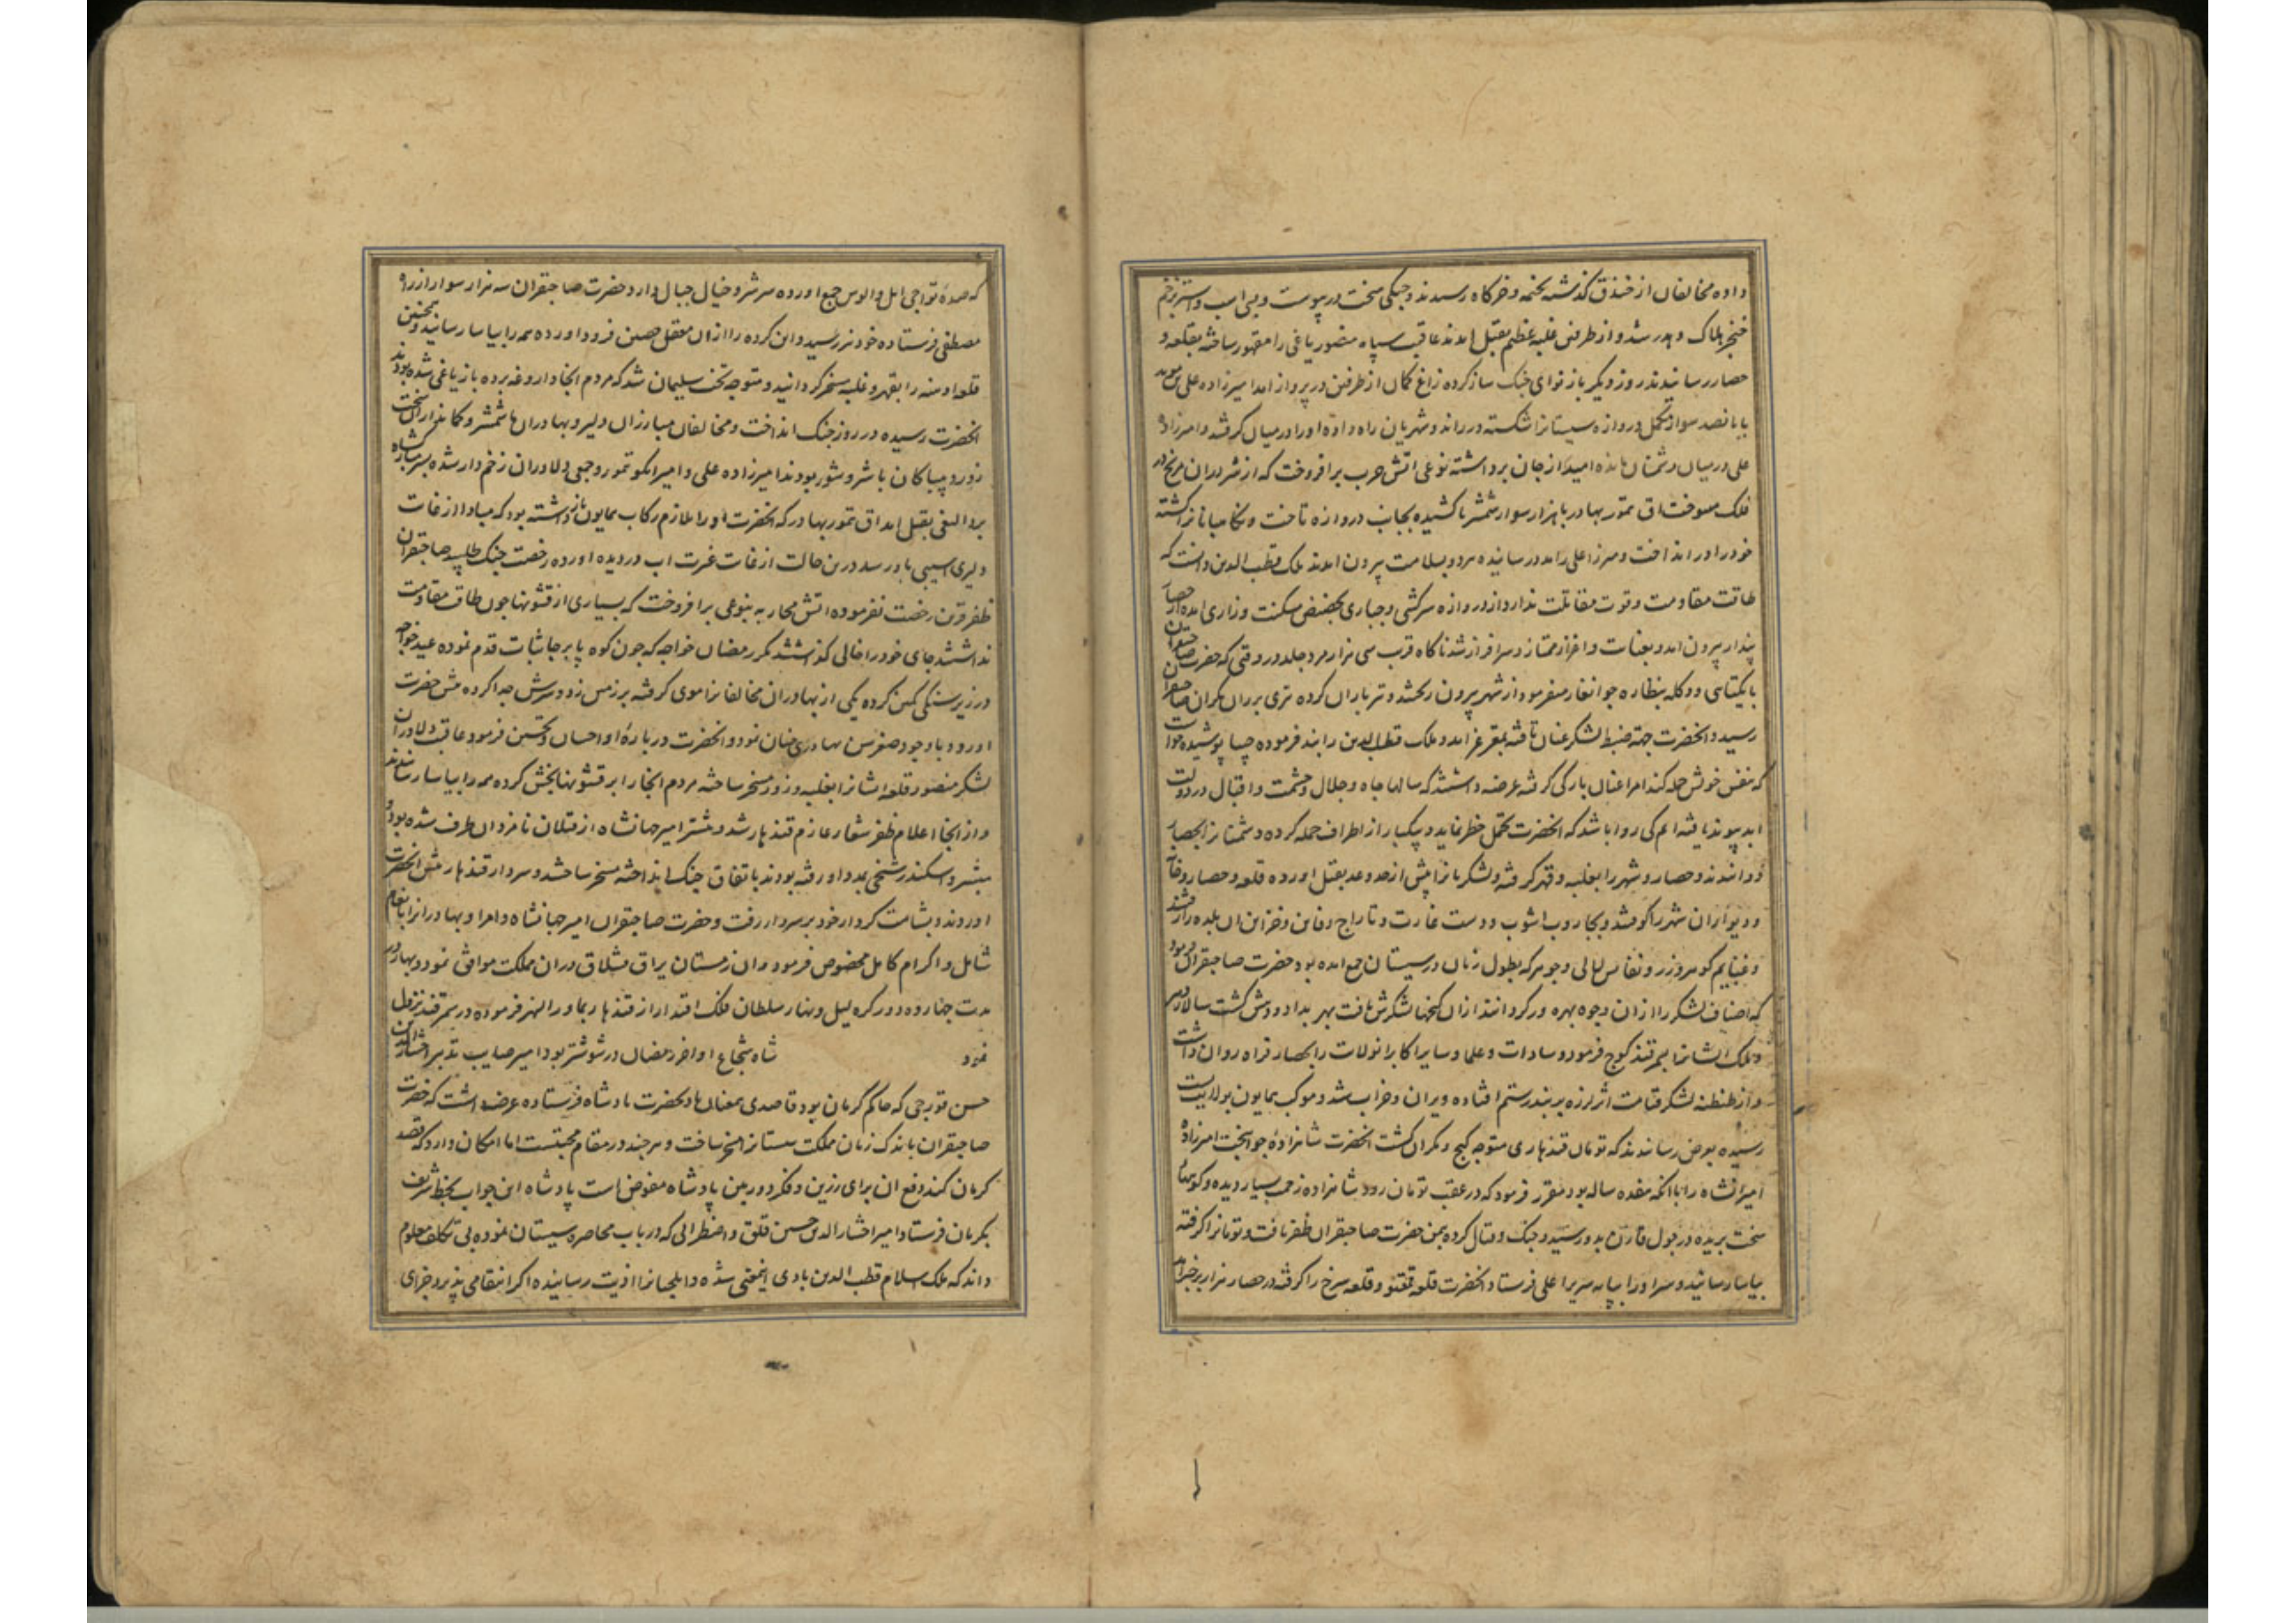 داده مخالفان از خندق گذشته بخیمه و خرگاه رسیدند و جنگی سخت در پیوست و بسی اسب و استر بزخم
خنجر هلاک و هدر شد و از طرفین غلبه عظیم بقتل امدند عاقبت سپاه منصور یاغی را مقهور ساخته بقلعه و
حصار رسانیدند روز دیگر باز نوای جنک ساز کرده زاغ کمان از طرفین در پرواز امد امیرزاده علی
با پانصد سوار مکمل دروازه سیستانرا شکسته درراند و شهریان راه داده او را در میان گرفتند و امیرزاده
علی در میان دشمنان مانده امید از جان برداشته نوعی اتش حرب برافروخت که از شرر ان مریخ در
فلک میسوخت اق تمور بهادر با هزار سوار شمشیرها کشیده بجانب دروازه تاخت و نگاهبانانرا کشته
خود را در انداخت و میرزا علی را مدد رسانیده هر دو بسلامت بیرون امدند ملک قطب الدین دانست که
طاقت مقاومت و قوت مقاتلت ندارد از دروازه سرکشی و جباری بحضیض مسکنت و زاری امده از حصار
پندار بیرون امد و بعنایت و اعزاز ممتاز و سرافراز شد ناگاه قرب سی هزار مرد جلد در وقتی که حضرت صاحبقران
با یکتایی و دو کله بنظاره جوانغار میفرمود از شهر بیرون ریختند و تیرباران کرده تیری بر ران یکران صاحبقران
رسید و انحضرت جهة ضبط لشکر عنان تافته بمقر عز امد و ملک قطب الدین را بند فرموده جیبا پوشیده خواست
که بنفس خویش حمله کند امرا عنان بارگی گرفته عرضه داشتند که سالها جاه و جلال و حشمت و اقبال در دولت
ابد پیوند یافته ایم کی روا باشد که انحضرت تحمل خطر نماید و بیکبار از اطراف حمله کرده دشمنانرا بحصار
دوانیدند و حصار و شهر را بغلبه و قهر گرفته و لشکریانرا پیش از حد و عد بقتل اورده قلعه و حصار و خانه
و دیواران شهر را کوفتند و بجاروب اشوب و دست غارت و تاراج دفاین و خزاین ان بلده را رفتند
و غنایم گوهر و زر و نفایس لالی و جوهر که بطول زمان در سیستان جمع امده بود حضرت صاحبقران فرمود
که اصناف لشکر را از ان وجوه بهره ور گردانند از ان گنجها لشکرش یافت بهر
و ملک ایشانرا بسمرقند کوچ فرمود و سادات و علما و سایر اکابر انولات را بحصار فراه روان داشت
و از طنطنه لشکر قیامت اثر لرزه بر بند رستم افتاده ویران و خراب شد و موکب همایون بولایت بست
رسیده بعرض رسانیدند که تومان قندهاری متوجه کیج و مکران گشت انحضرت شاهزاده جوانبخت امیرزاده
امیرانشاه را با انکه هفده ساله بود مقرر فرمود که در عقب تومان رود شاهزاده زحمت بسیار دیده و کوهها
سخت بریده در چول قارن بدو رسید و جنک و قتال کرده بیمن حضرت صاحبقران ظفر یافت و تومانرا گرفته
بیاسا رسانید و سر او را بپایه سریر اعلی فرستاد انحضرت قلعه و قلعه سرخ را گرفته در حصار هزارپر خبر امد
که صده تواجی ایل و الوس جمع اورده سر شر و خیال جبال دارد حضرت صاحبقران سه هزار سوار از راه
مصطفی فرستاده خود نیز رسید و این کرده را از ان معقل حصین فرود اورده همه را بیاسا رسانید و همچنین
قلعه اومنه را بقهر و غلبه مسخر گردانید و متوجه تخت سلیمان شد که مردم انجا داروغه برده باز یاغی شده بودند
انحضرت رسیده در روز جنک انداخت و مخالفان مبارزان دلیر و بهادران با شمشیر و کمانداران سخت
زور و بیباکان با شر و شور بودند امیرزاده علی و امیر ایکو تمور و جمعی دلاوران زخم دار شده
برد البغی بقتل امد اق تمور بهادر که انحضرت او را ملازم رکاب همایون بازداشته بود که مبادا از غایت
دلیری اسیبی بدو رسد درین حالت از غایت غیرت اب در دیده اورده رخصت جنک طلبید صاحبقران
ظفر قرین رخصت نفرموده اتش محاربه بنوعی برافروخت که بسیاری از قشونها چون طاقت مقاومت
نداشتند جای خود را خالی گذاشتند مگر رمضان خواجه که چون کوه پابرجا ثبات قدم نموده عید خواجه
در زیر سنگی کمین کرده یکی از بهادران مخالفانرا موی گرفته بر زمین زد و سرش جدا کرده پیش حضرت
اورد و باوجود صغر سن بهادری چنان نمود و انحضرت درباره او احسان و تحسین فرمود عاقبت دلاوران
لشکر منصور قلعه ایشانرا بغلبه و زور مسخر ساخته مردم انجا را بر قشونها بخش کرده همه را بیاسا رسانیدند
و از انجا اعلام ظفر شعار عازم قندهار شد و پیشتر امیر جهانشاه از قتلان نامزد ان طرف شده بود و
مبشر و اسکندر شیخی بمدد او رفته بودند باتفاق جنک انداخته مسخر ساختند و سردار قندهار پیش انحضرت
اوردند و بشامت کردار خود بر سر دار رفت و حضرت صاحبقران امیر جهانشاه و امرا و بهادرانرا بانعام
شامل و اکرام کامل مخصوص فرمود و ان زمستان یراق قشلاق در ان مملکت موافق نمود و بهار در
مدت چهارده دور کره لیل و نهار سلطان فلک اقتدار از قندهار بماورالنهر فرموده در سمرقند نزول
نمود شاه شجاع اواخر رمضان در شوشتر بود امیر صایب تدبیر اختیارالدین
حسن قورجی که حاکم کرمان بود قاصدی بمعنان باد بحضرت پادشاه فرستاده عرضه داشت که حضرت
صاحبقران باندک زمان مملکت سیستانرا مسخر ساخت و هرچند در مقام محبتست اما امکان دارد که قصد
کرمان کند دفع ان برای رزین و فکر دوربین پادشاه مفوض است پادشاه این جواب بخط شریف
بکرمان فرستاد امیر اختیارالدین حسن قلق و اضطرابی که در باب محاصره سیستان نموده بی تکلف معلوم
داند که ملک سلام قطب الدین بادی شده و ایلچیانرا اذیت رسانیده اگر انتقامی پذیرد و جزای